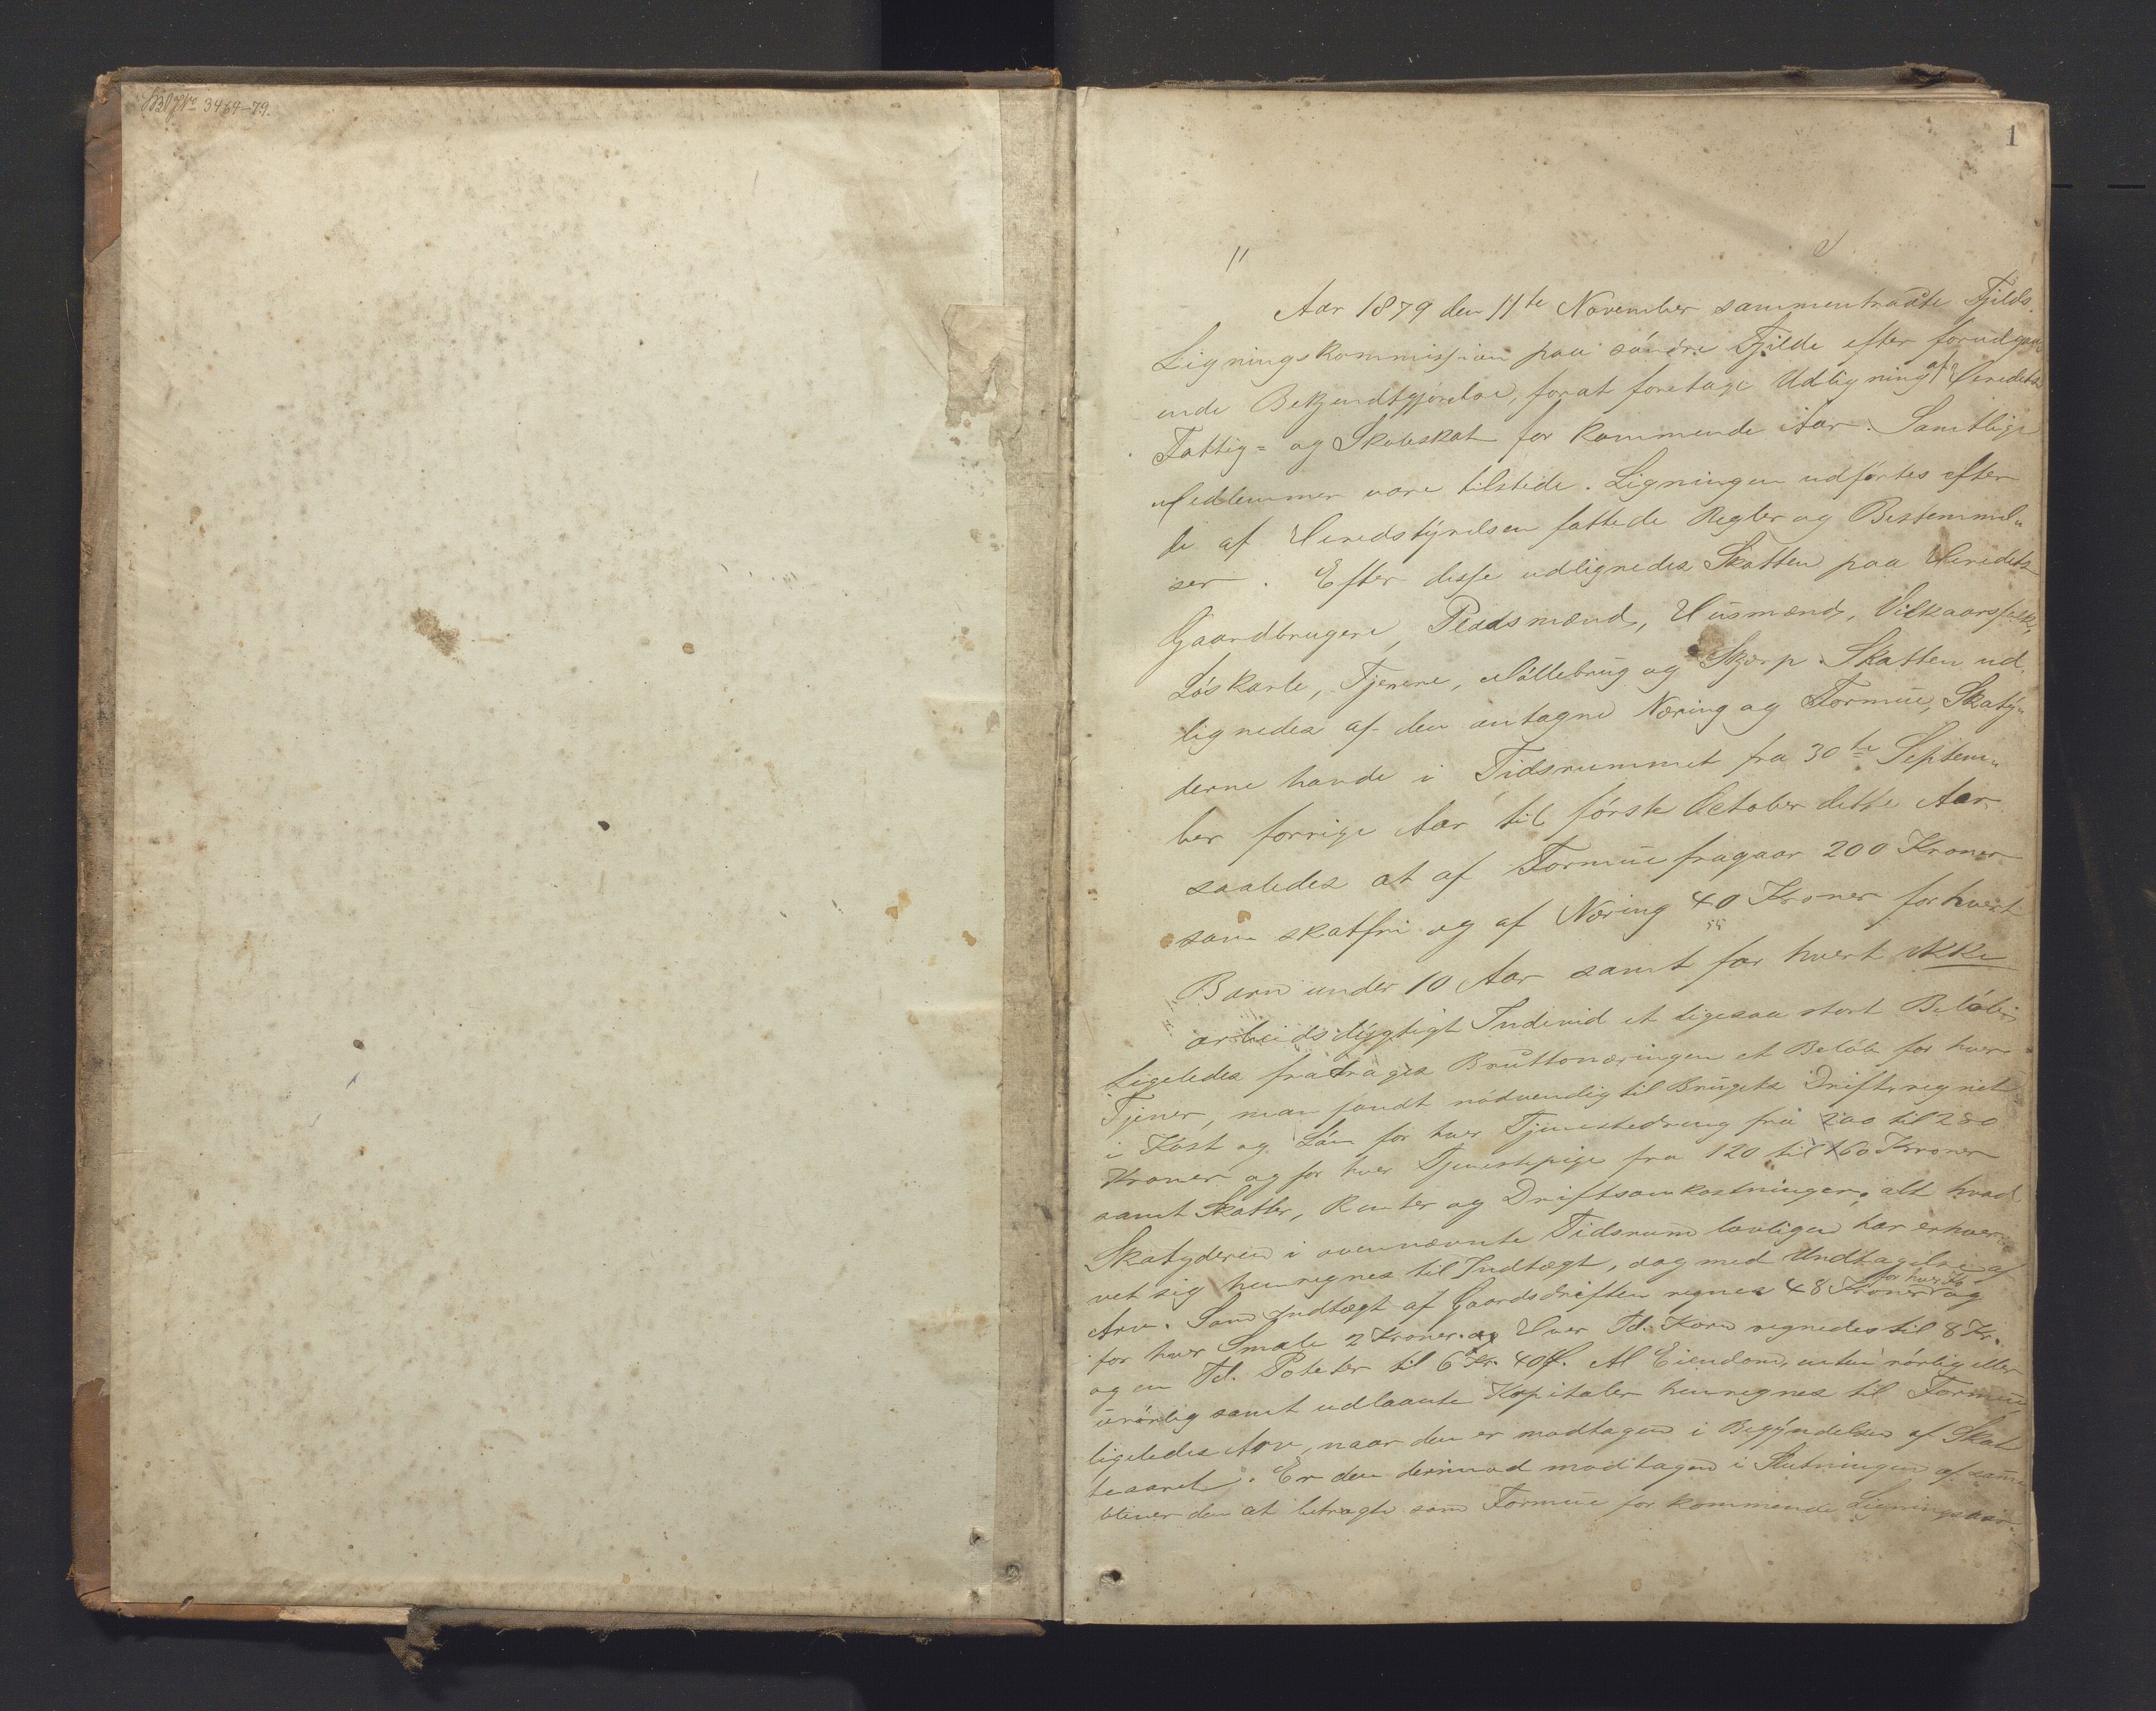 3464-79.
1
Aar 1879 den 11te November sammentraadte Fjilds
Ligningskommission paa söndre Fjilde efter forudgaa
ende Bekjendtgjörelse, forat foretage Udligning af Heredets
Fattig= og Skoleskat for kommende Aar. Samtlige
Medlemmer vare tilstede. Ligningen udförtes efter
de af Heredstyrelsen fattede Regler og Bestemmel„
ser. Efter disse udlignedes Skatten paa Heredets
Gaardbrugere, Pladsmænd, Husmænd, Vilkaarsfolk,
Löskarle, Tjenere, Möllebrug og Skjærp. Skatten ud„
lignedes af den antagne Næring og Formue, Skaty„
derne havde i Tidsrummet fra 30te Septem„
ber forrige Aar til förste October dette Aar
saaledes at af Formue fragaar 200 Kroner
som skatfri og af Næring 40 Kroner for hvert
Barn under 10 Aar samt for hvert ikke
arbeidsdygtigt Individ et ligesaa stort Belöb;
Ligeledes fradrages Bruttonæringen et Belöb for hver
Tjener, man fandt nödvendig til Brugets Drift, regnet
i Kost og Lön for hver Tjenestedreng fra 200 til 280
Kroner og for hver Tjenestepige fra 120 til 160 Kroner
samt Skatter, Renter og Driftsomkostninger, alt hvad
Skatyderen i ovennævnte Tidsrum lovligen har erhver„
vet sig henregnes til Indtægt, dog med Undtagelse af
Arv. Som Indtægt af Gaardsdriften regnes 48 Kroner for hver Ko og
for hver Smale 2 Kroner. Hver Td. Korn regnedes til 8 Kr.
og en Td. Poteter til 6 Kr. 40 Ö. Al Eiendom, enten rörlig eller
urörlig samt udlaante Kapitaler henregnes til Formue,
ligeledes Arv, naar den er modtagen i Begyndelsen af Skat
teaaret. Er den derimod modtagen i Slutningen af samme
bliver den at betragte som Formue for kommende Ligningsaar.